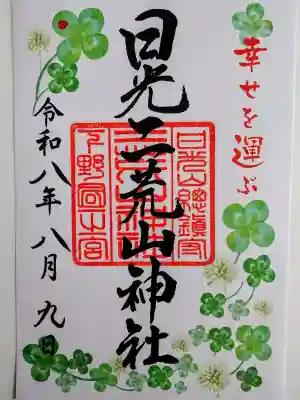 幸せを運ぶ
日光二荒山神社
日光山總鎮守
下野国一之宮
令和八年八月九日